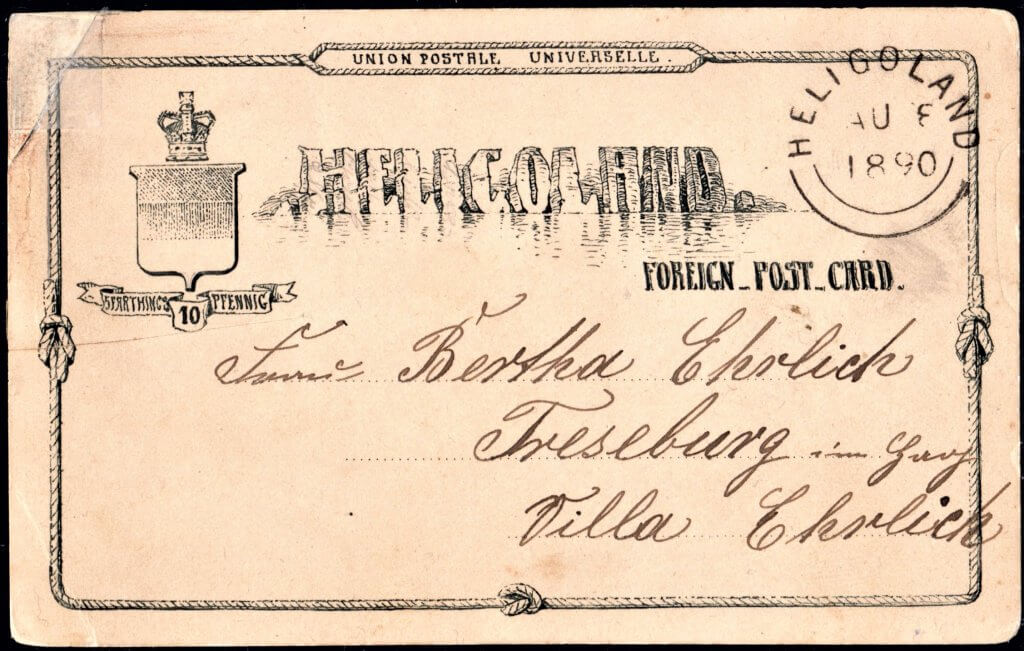 UNION POSTALE UNIVERSELLE.
HELIGOLAND
AU 8
1890
HELIGOLAND.
FOREIGN_POST_CARD.
5 FARTHINGS 10 PFENNIG
Frau Bertha Ehrlich
Treseburg im Harz
Villa Ehrlich